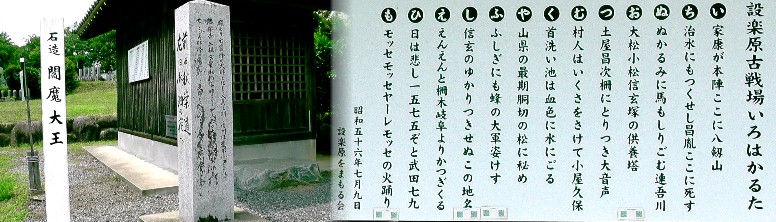 設楽原古戦場いろはかるた
い 家康が本陣ここに八剱山
ち 治水にもつくせし昌胤ここに死す
ぬ ぬかるみに馬もしりごむ連吾川
お 大松小松信玄塚の供養塔
つ 土屋昌次柵にとりつき大音声
む 村人はいくさをさけて小屋久保
く 首洗い池は血色に水にごる
や 山県の最期胴切の松に秘め
ふ ふしぎにも蜂の大軍姿けす
し 信玄のゆかりつきせぬこの地名
え えんえんと柵木岐阜よりかつぎくる
ひ 日は悲し一五七五ぞと武田七九
も モッセモッセヤーレモッセの火踊り
昭和五十六年七月九日
設楽原をまもる会
石造 閻魔大王